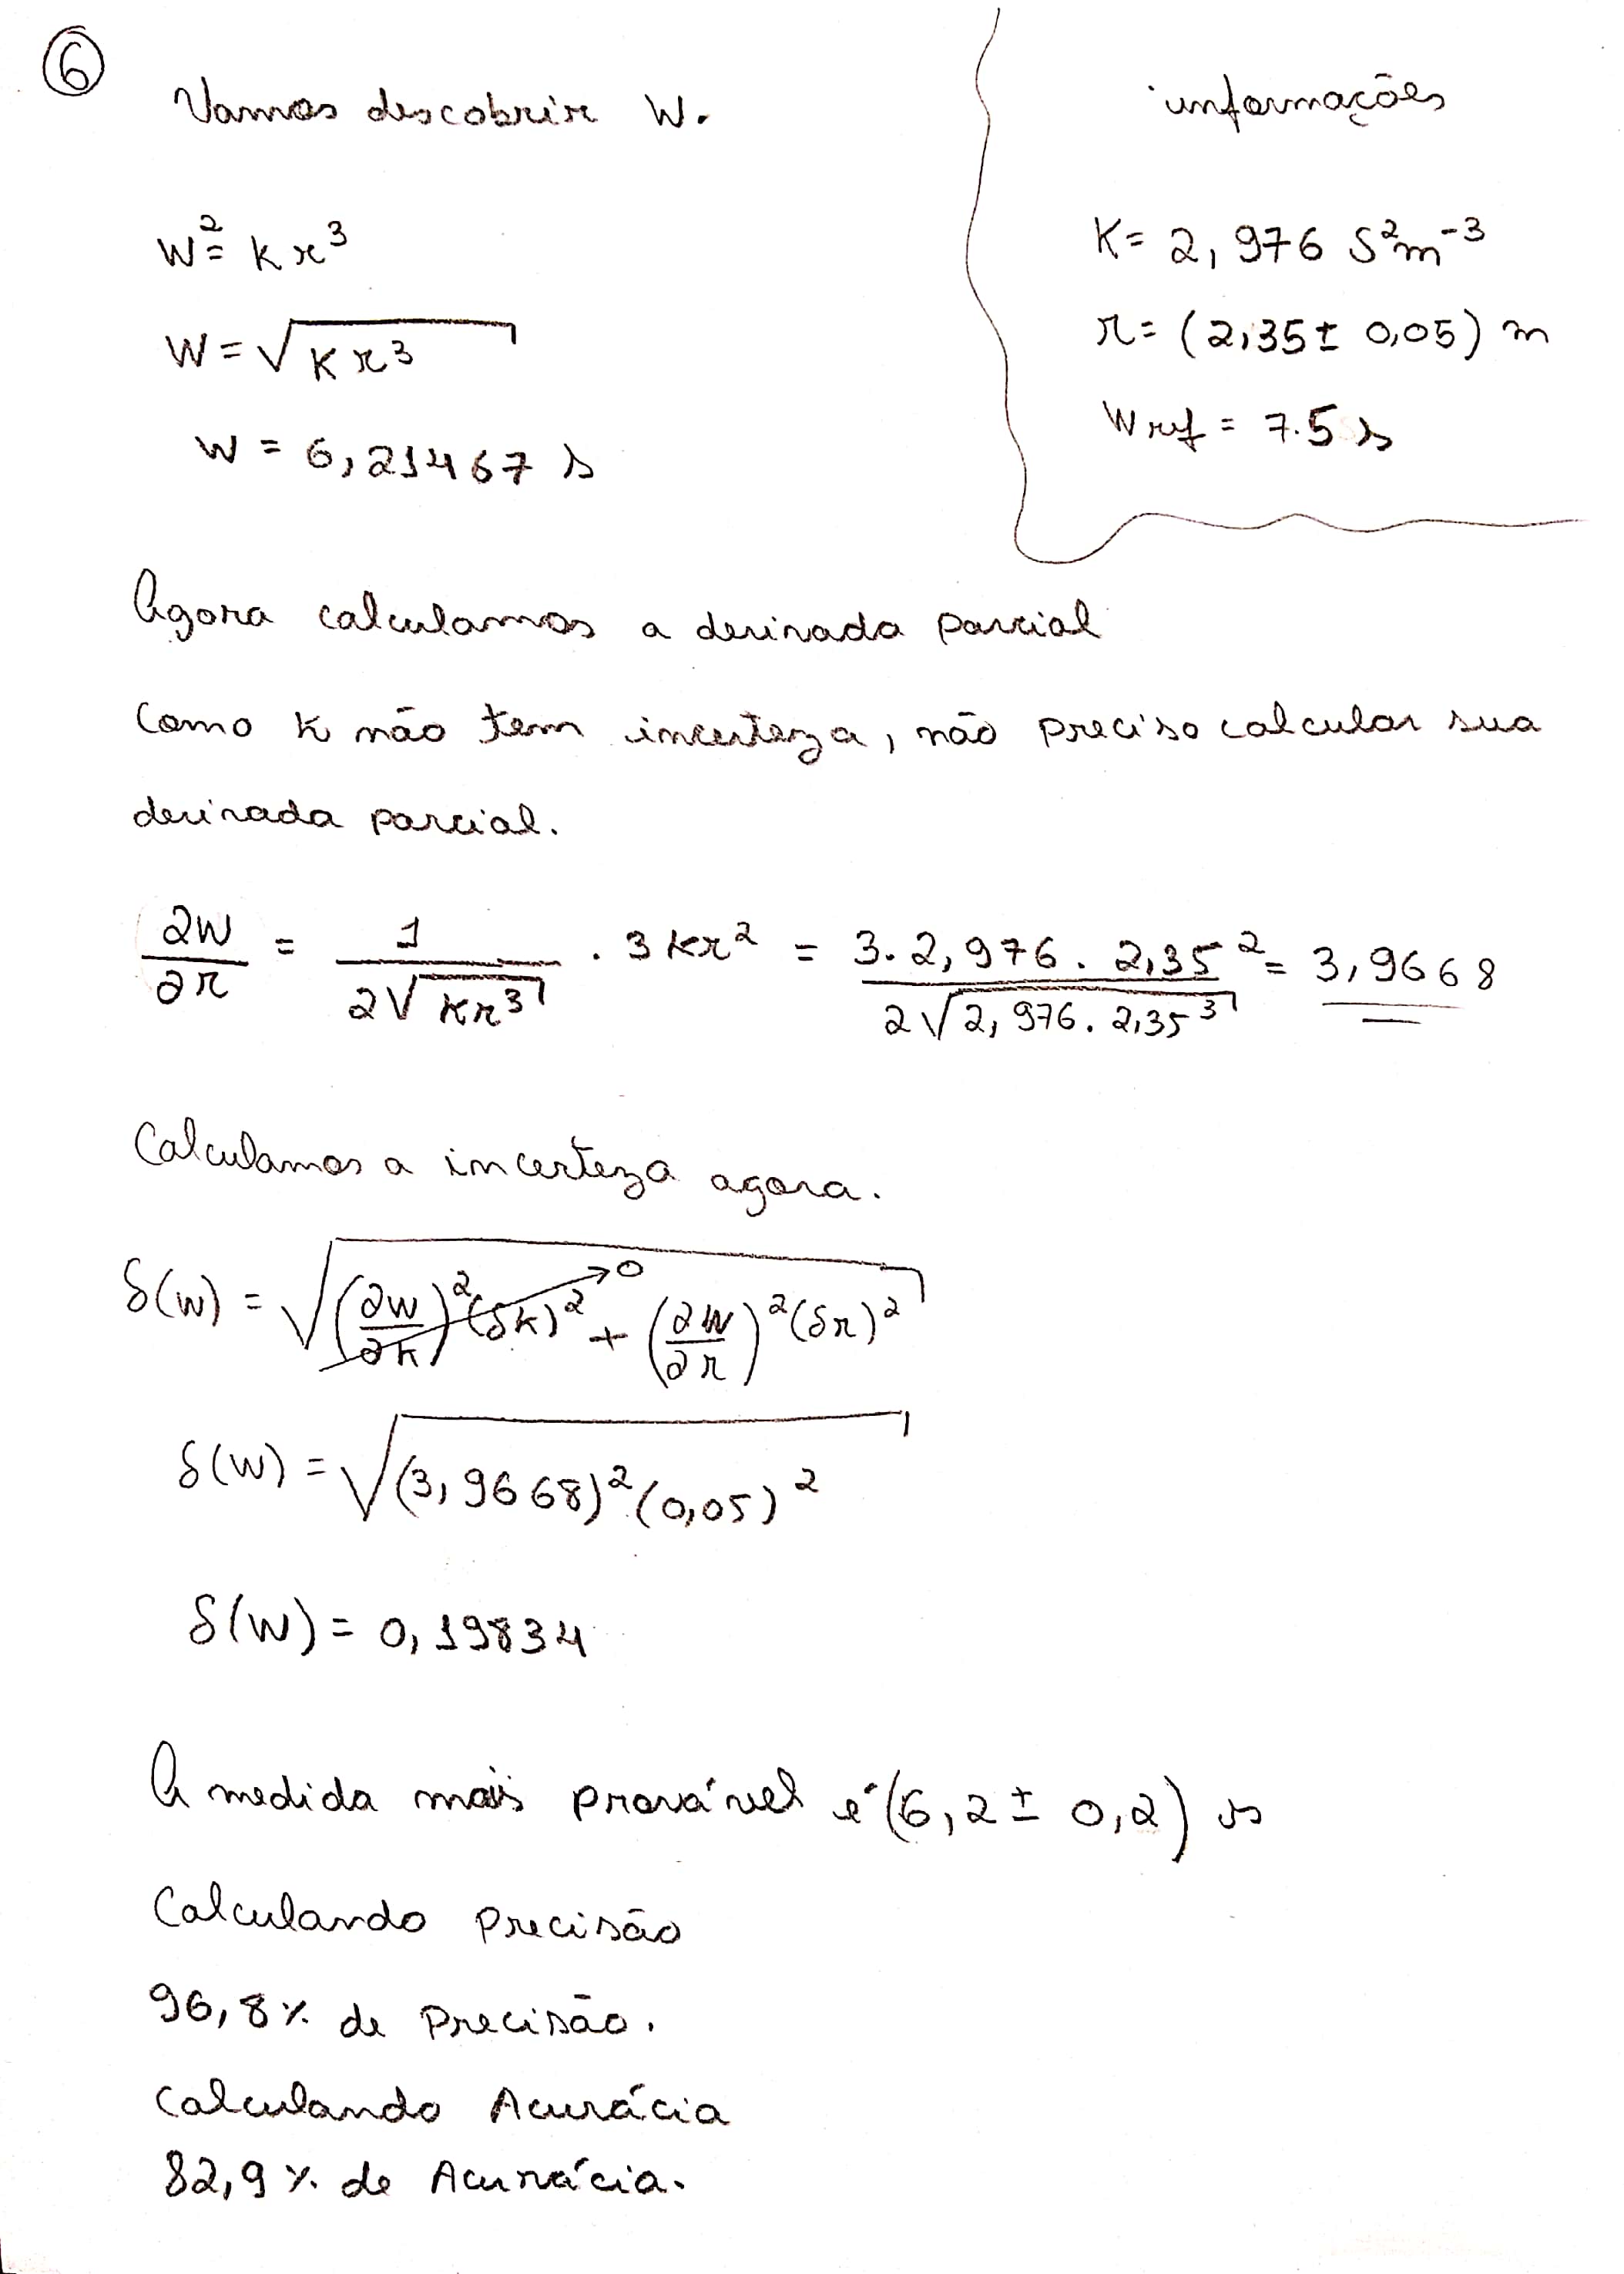 6
Vamos descobrir W.
informações
W² = k r³
K = 2,976 S²m⁻³
W = √(K r³)
r = (2,35 ± 0,05) m
W = 6,21467 s
Wref = 7.5 s
Agora calculamos a derivada parcial
Como k não tem incerteza, não preciso calcular sua
derivada parcial.
∂W/∂r = 1/(2√(kr³)) . 3kr² = (3 . 2,976 . 2,35²)/(2√(2,976 . 2,35³)) = 3,9668
Calculamos a incerteza agora.
δ(w) = √((∂w/∂k)²(δk)² → 0 + (∂w/∂r)²(δr)²)
δ(W) = √((3,9668)²(0,05)²)
δ(W) = 0,19834
A medida mais provável é (6,2 ± 0,2) s
Calculando precisão
96,8% de Precisão.
Calculando Acurácia
82,9% de Acurácia.